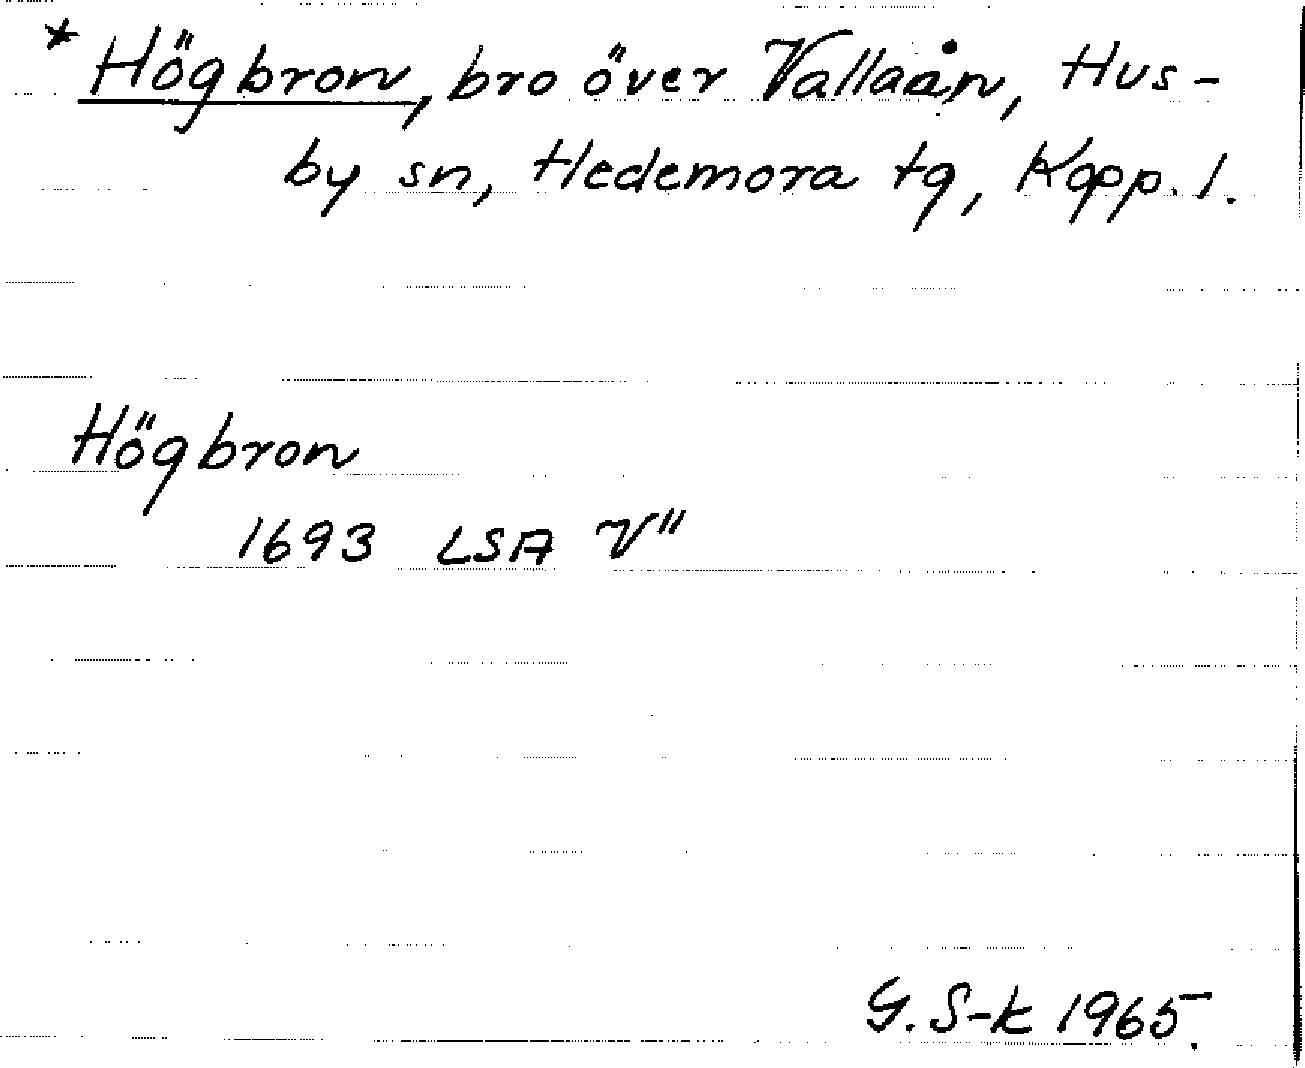 * Högbron, bro över Vallaån, Hus-
by sn, Hedemora tg, Kopp. l.
Högbron
1693 LSA V"
G. S-k 1965.